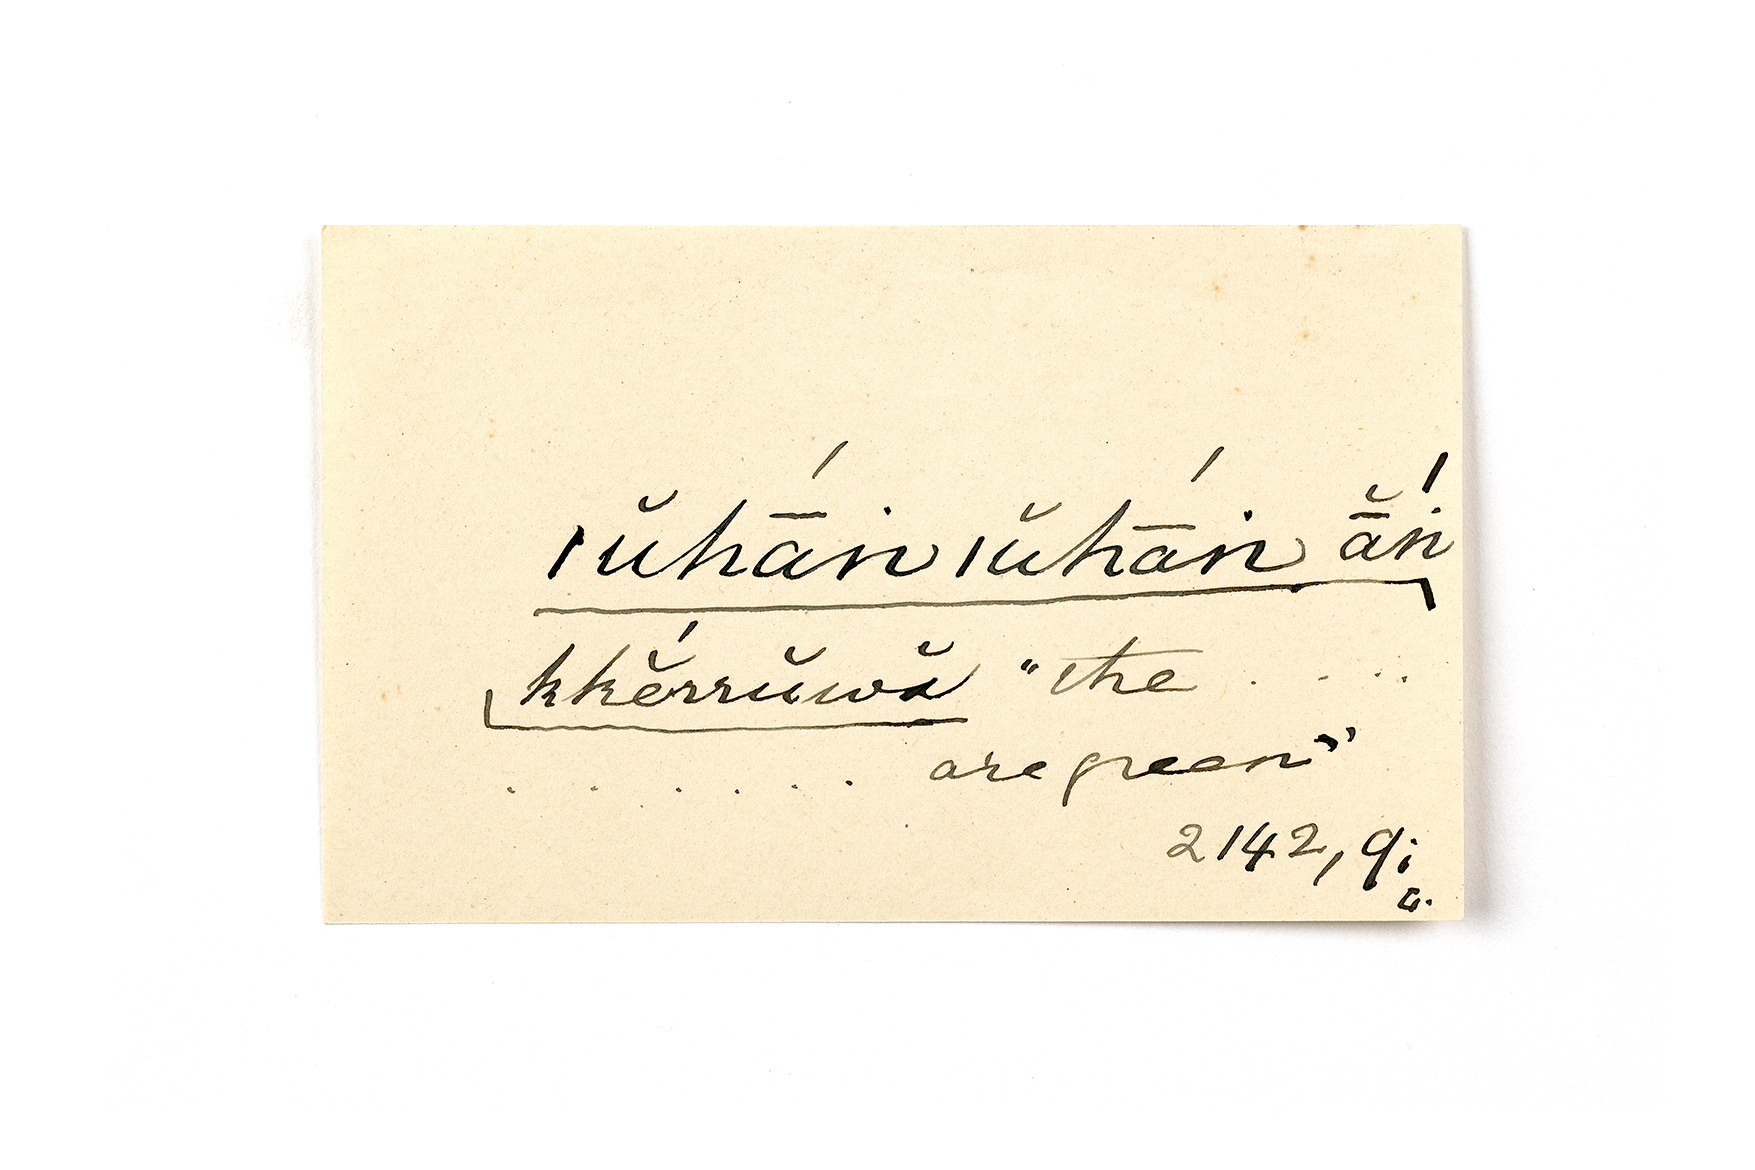 ıŭhā́ṅ ıŭhā́ṅ ā̆́ṅ
kkĕ́rrŭwă "the . . . .
. . . . . . are green"
2142, 9;